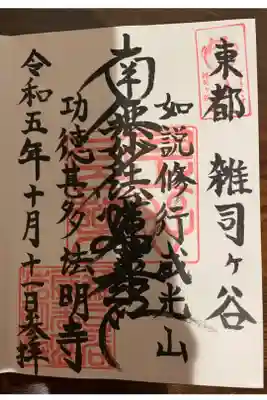 東都 雑司ヶ谷
如説修行威光山
南無妙法蓮華経
功徳甚多法明寺
令和五年十月十一日参拝